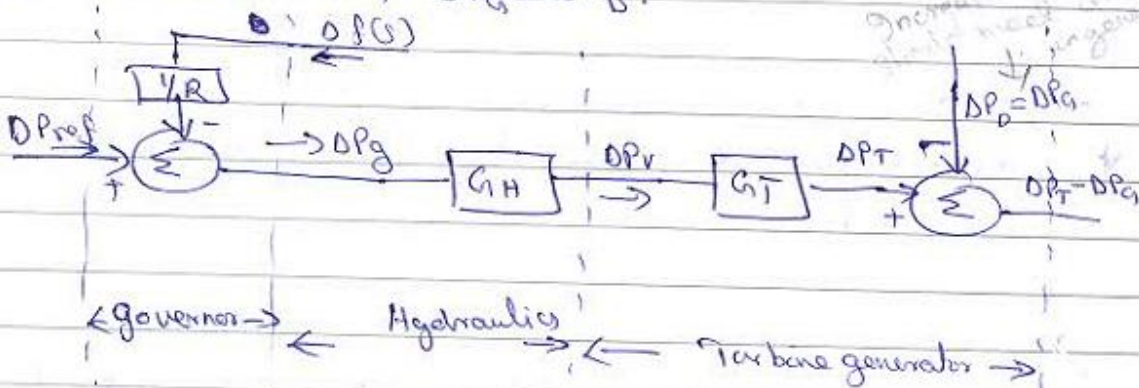 Df(s)
1/R
DPref
+
-
Σ
→ DPg
GH
DPv
→
GT
DPT
DP_D = DPG
-
+
Σ
DPT - DPG
<governor>
Hydraulics
Turbine generator